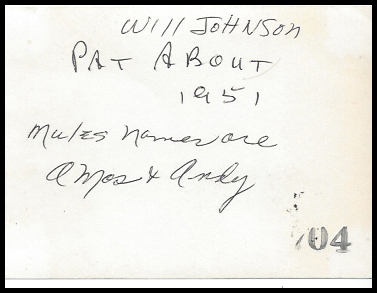 Will Johnson
PAT ABOUT
1951
Mules Names are
Amos & Andy
04